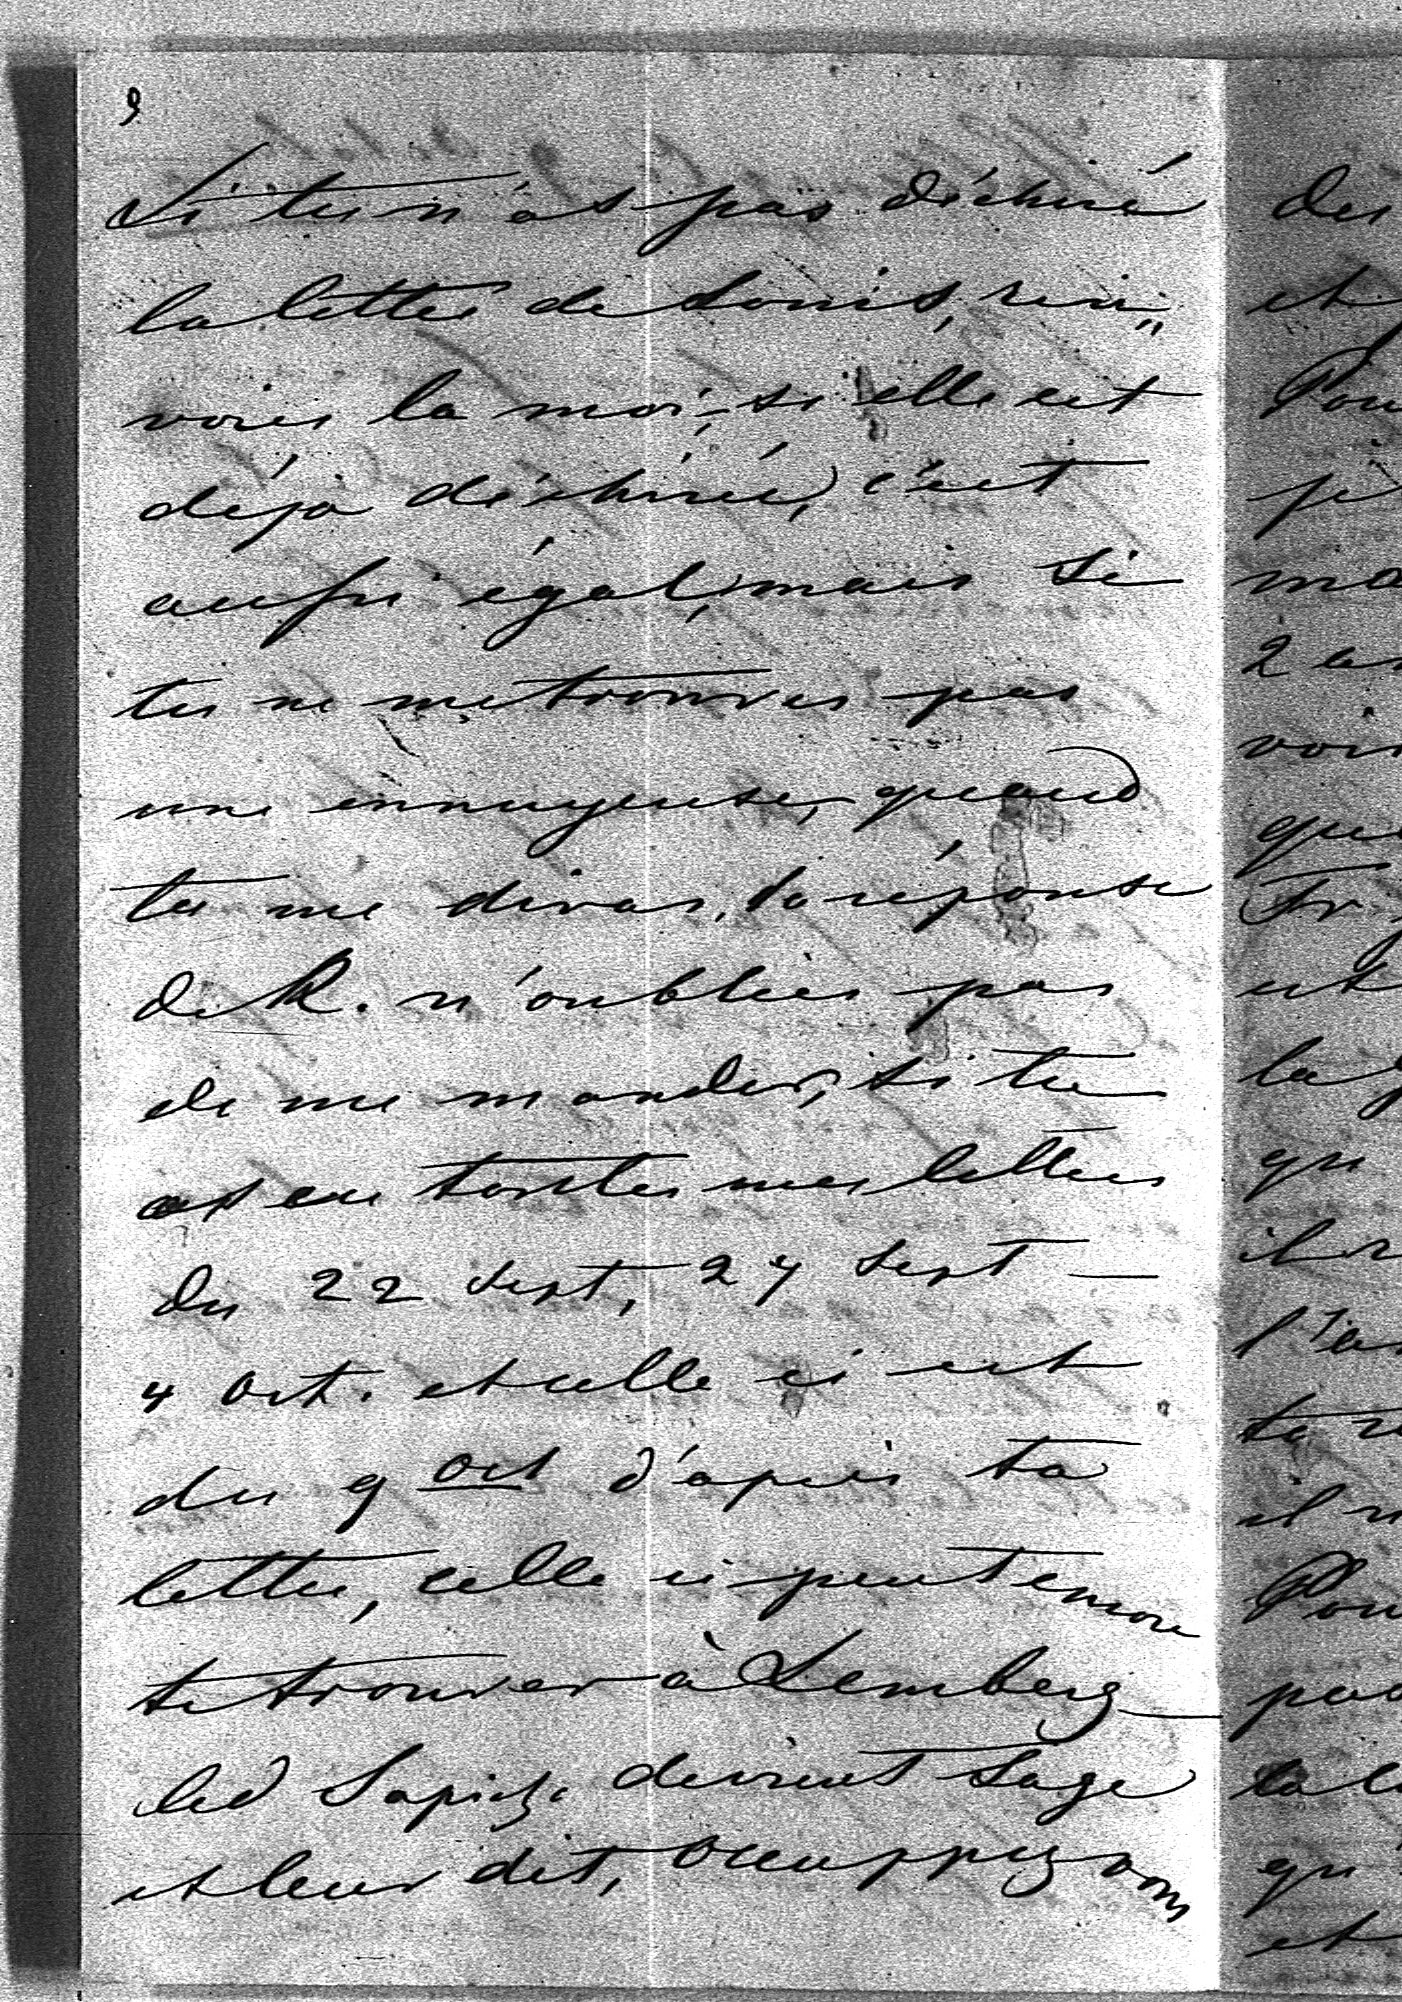 9
Si tu n'as pas déchiré
la lettre de Louis, ren„
voies la moi – si elle est
déjà déchirée, c'est
aussi égal, mais si
tu ne me trouves pas
une ennuyeuse, quand
tu me diras, la réponse
de K. n'oublies pas
de me mander, si tu
as eu toutes mes lettres
du 22 Sept, 27 Sept —
4 Oct. et celle ci est
du 9 Oct d'après ta
lettre, celle ci peut encore
te trouver à Lemberg —
led Sapieh. devient sage
et leur dit, occuppez vous
des
et
Pou
il r
Pou
pas
qu'
et